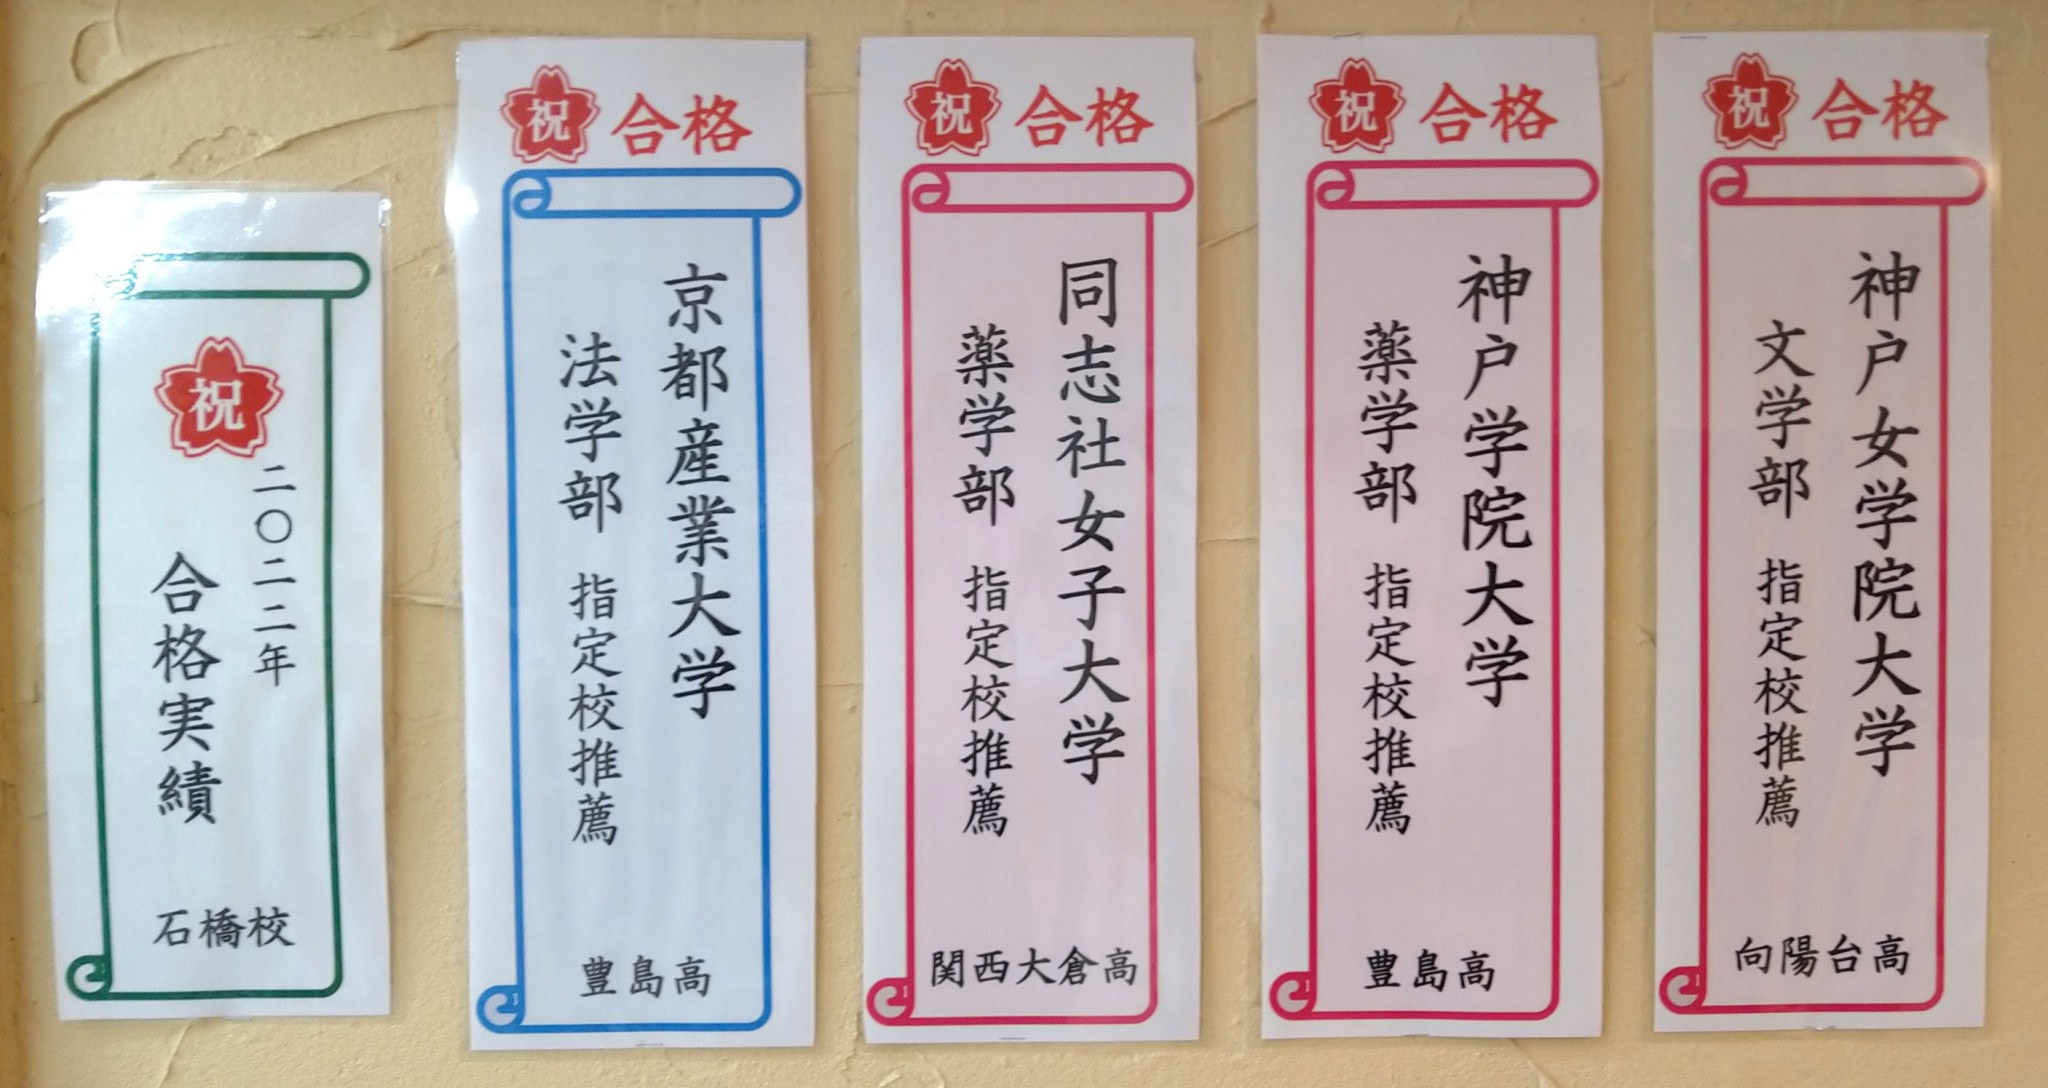 祝
二〇二二年
合格実績
石橋校
祝 合格
京都産業大学
法学部 指定校推薦
豊島高
祝 合格
同志社女子大学
薬学部 指定校推薦
関西大倉高
祝 合格
神戸学院大学
薬学部 指定校推薦
豊島高
祝 合格
神戸女学院大学
文学部 指定校推薦
向陽台高